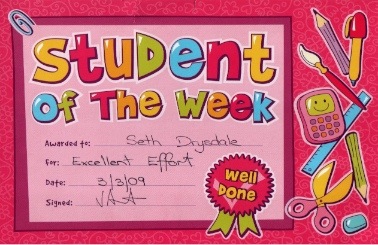 Student
of The Week
Awarded to: Seth Drysdale
For: Excellent Effort
Date: 3/3/09
Signed:
Well
Done